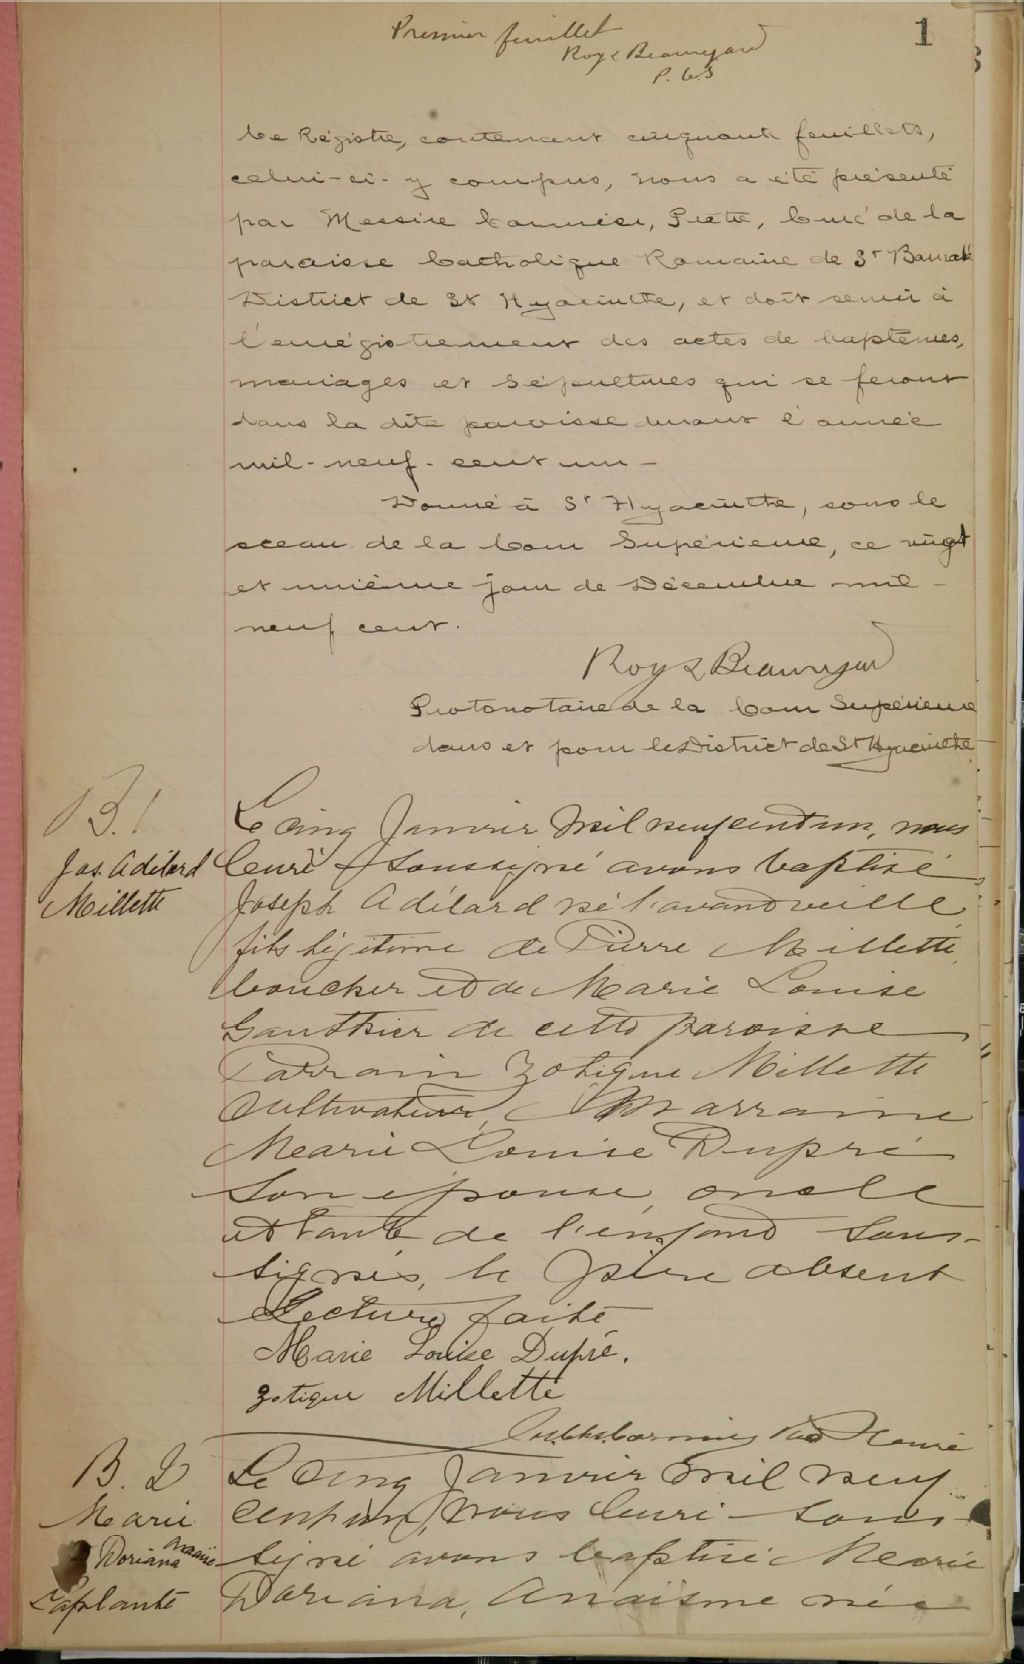 1
Premier feuillet
Roy & Beauregard
P. C. S
Ce Régistre, contenant cinquante feuillets,
celui-ci-y compris, nous a été présenté
par Messire Cormier, Prêtre, Curé de la
paroisse Catholique Romaine de St Barnabé
District de St Hyacinthe, et doit servir à
l'enrégistrement des actes de baptêmes,
mariages et sépultures qui se feront
dans la dite paroisse durant l'année
mil-neuf-cent un-
Donné à St Hyacinthe, sous le
sceau de la Cour Supérieure, ce vingt
et unième jour de Décembre mil-
neuf cent.
Roy & Beauregard
Protonotaire de la Cour Supérieure
dans et pour le District de St Hyacinthe
B. 1
Jos. Adélard
Millette
Le cinq Janvier mil neuf cent un, nous
Curé soussigné avons baptisé
Joseph Adélard né l'avant veille
fils légitime de Pierre Millette
boucher et de Marie Louise
Gauthier de cette paroisse
Parrain Zotique Millette
Cultivateur, Marraine
Marie Louise Dupré
son épouse, oncle
et tante de l'enfant sous-
signés, le père absent
Lecture faite
Marie Louise Dupré.
Zotique Millette
Curé
B. 2
Marie
Doriana Anaïsme
Laplante
Le Cinq Janvier mil neuf
cent un, nous Curé sous-
signé avons baptisé Marie
Doriana, Anaïsme née